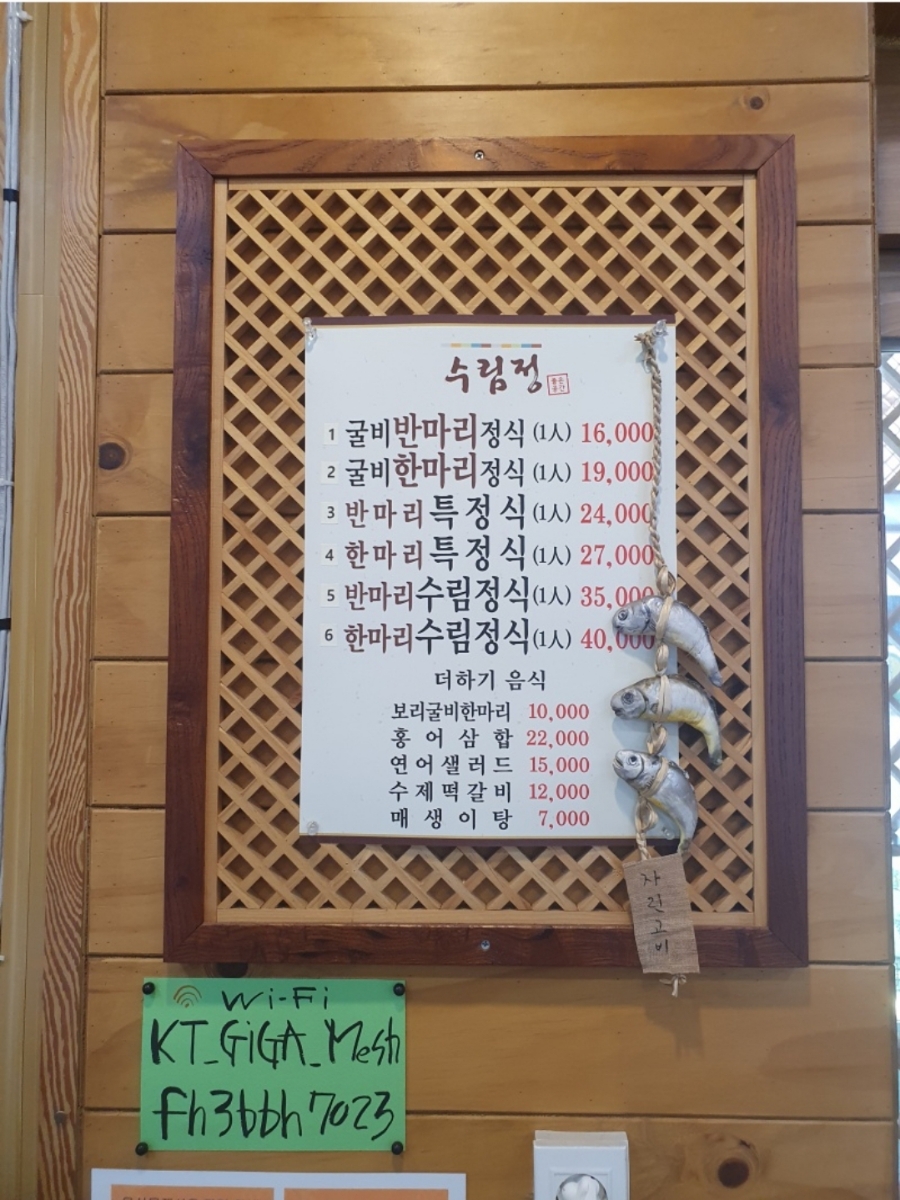 수림정
1 굴비반마리정식 (1人) 16,000
2 굴비한마리정식 (1人) 19,000
3 반마리특정식 (1人) 24,000
4 한마리특정식 (1人) 27,000
5 반마리수림정식 (1人) 35,000
6 한마리수림정식 (1人) 40,000
더하기 음식
보리굴비한마리 10,000
홍어삼합 22,000
연어샐러드 15,000
수제떡갈비 12,000
매생이탕 7,000
자린고비
Wi-Fi
KT_GiGA_Mesh
fh3bbh7023